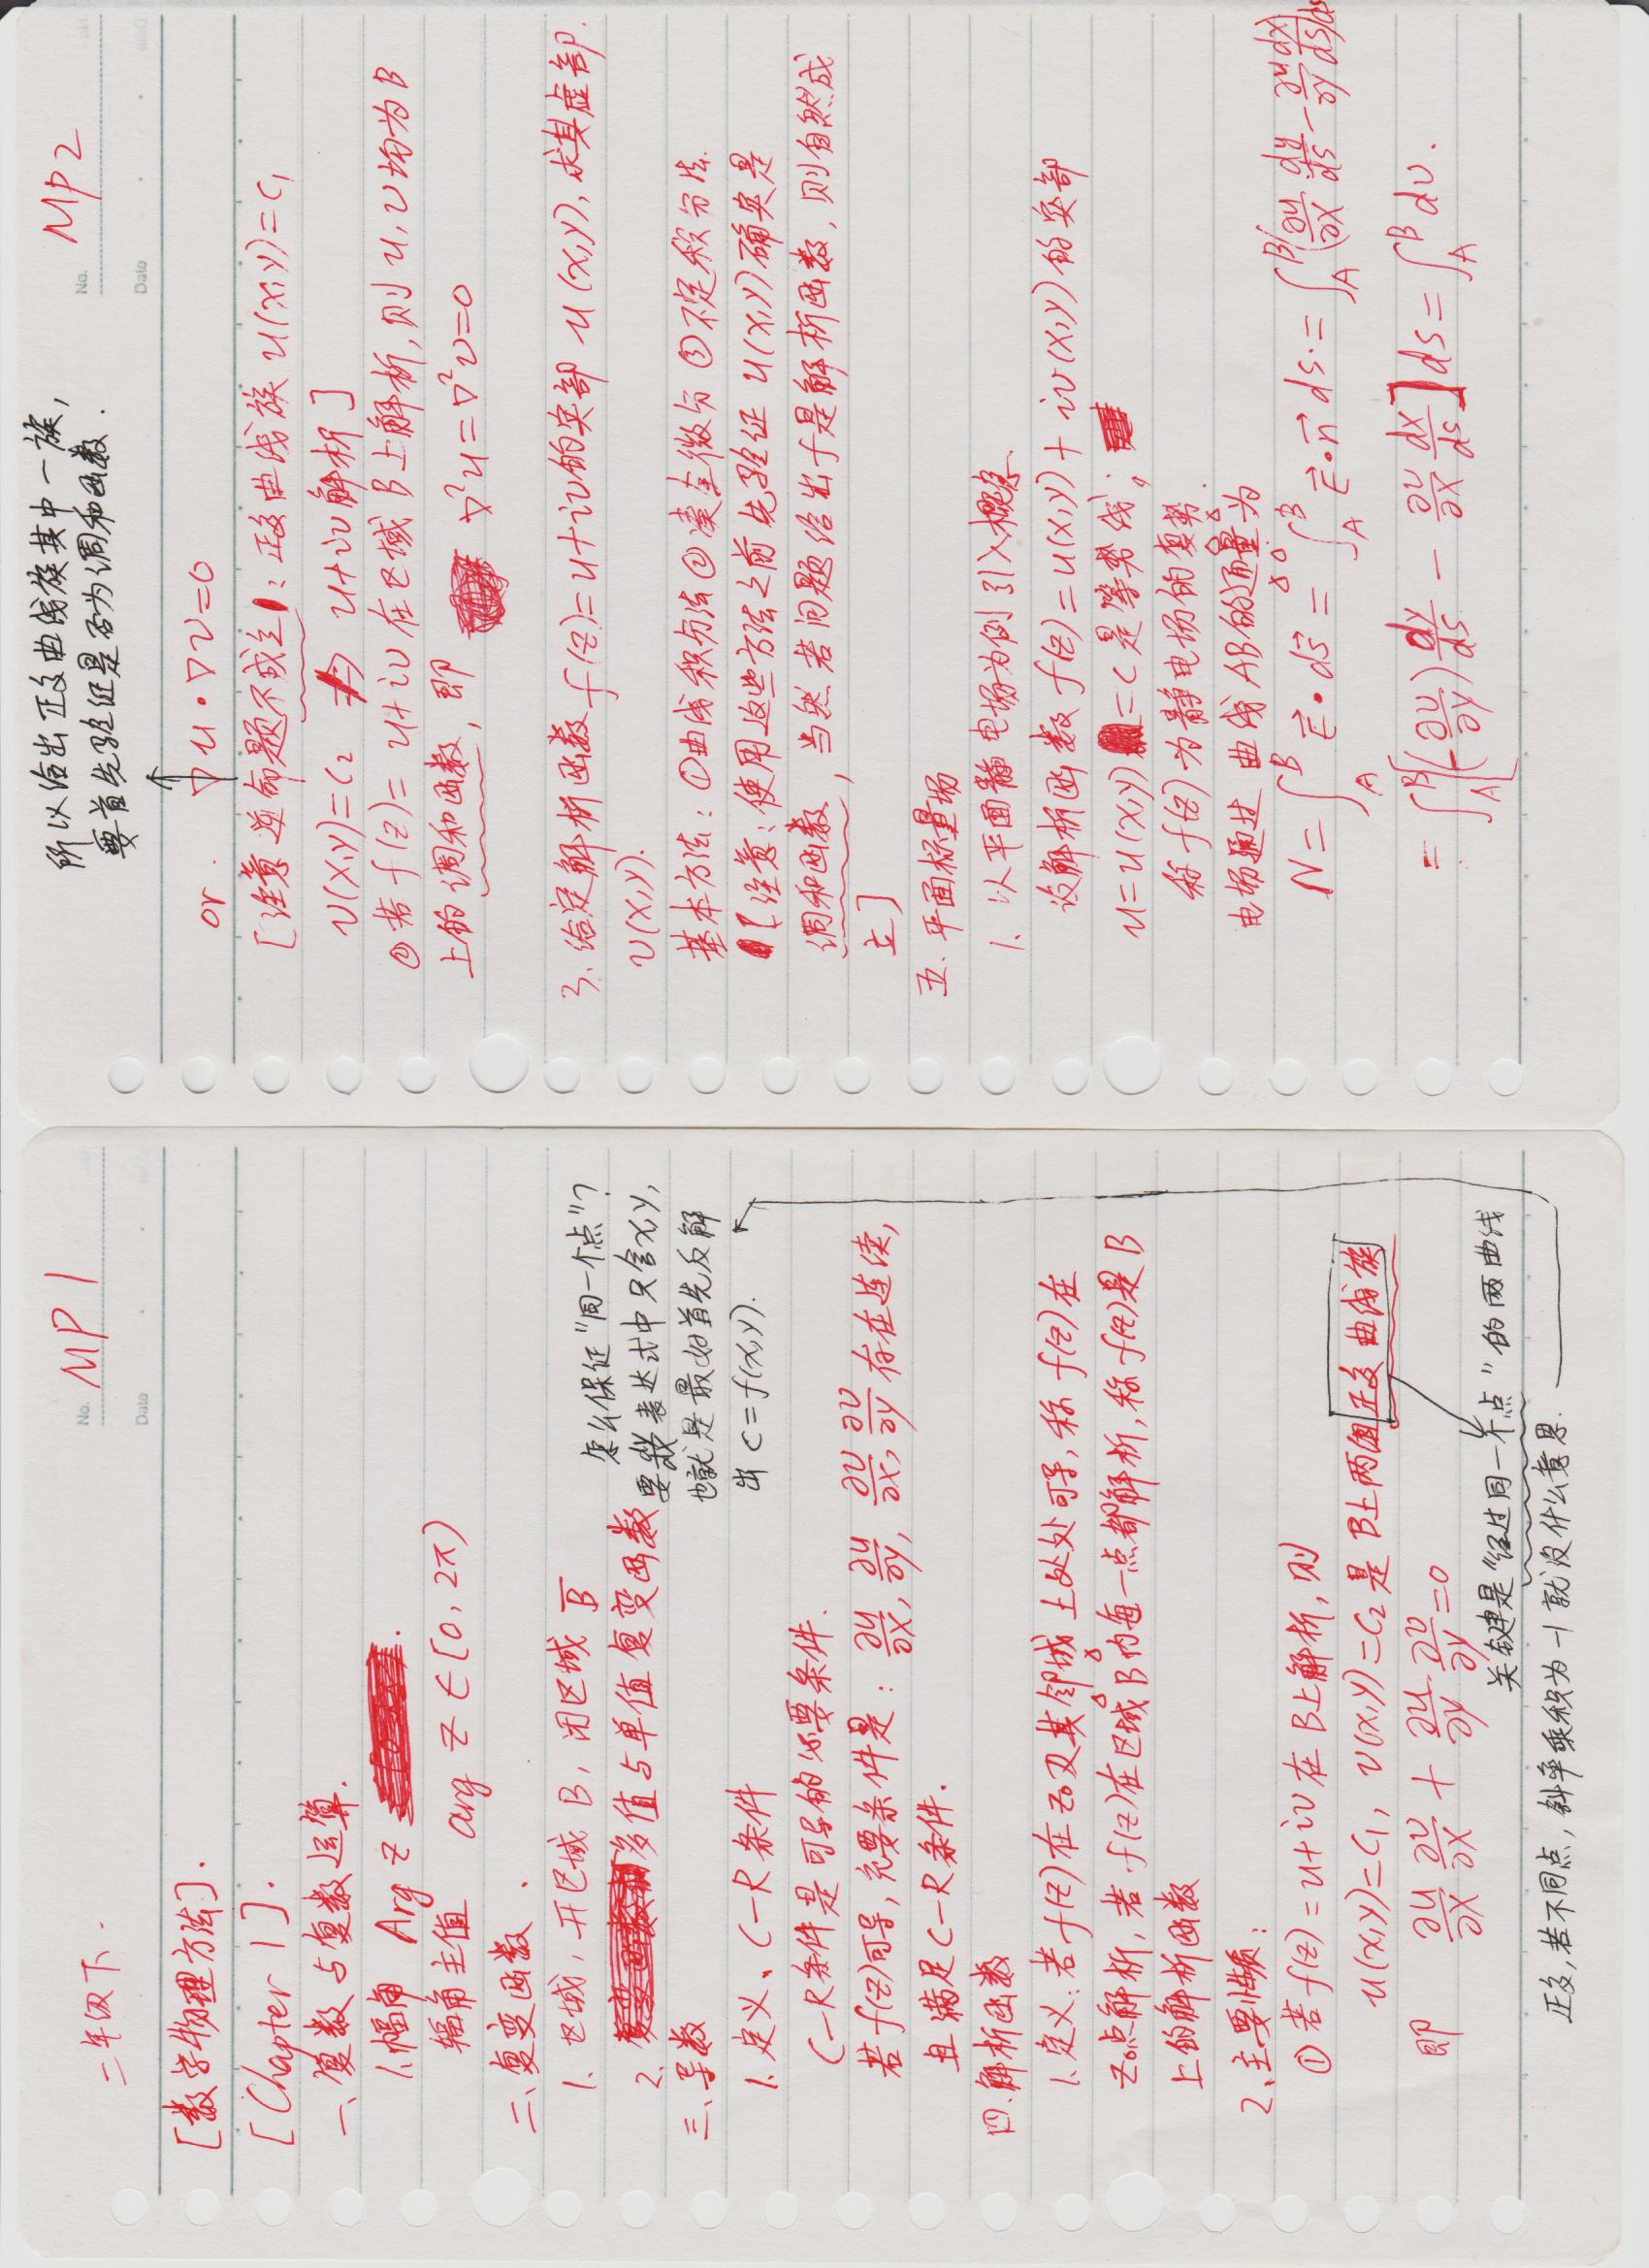 二年级下.
No. MP 1
Date
[数学物理方法].
[Chapter 1].
一、复数与复数运算.
1.幅角 Arg z
辐角主值 arg z ∈ [0, 2π)
二、复变函数.
1. 区域, 开区域 B, 闭区域 B̅
2. 多值与单值复变函数
三、导数
1. 定义、C-R 条件
C-R条件是可导的必要条件.
若 f(z)可导, 充要条件是: ∂u/∂x, ∂u/∂y, ∂v/∂x, ∂v/∂y 存在连续,
且满足 C-R 条件.
怎么保证"同一个点"?
要 表达式中只含x,y,
也就是最好首先反解
出 c=f(x,y).
四.解析函数
1.定义: 若 f(z) 在 z₀及其邻域上处处可导, 称 f(z) 在
z₀点解析, 若 f(z)在区域B内每一点都解析, 称 f(z)是 B
上的解析函数
2.主要性质:
① 若 f(z) = u+iv 在 B上解析, 则
u(x,y)=C₁, v(x,y)=C₂ 是 B上两组正交曲线族
即 ∂u/∂x ∂v/∂x + ∂u/∂y ∂v/∂y =0
关键是"经过同一个点"的两曲线
正交,若不同点, 斜率乘积为 -1 就没什么意思.
所以给出正交曲线族其中一族,
要首先验证是否为调和函数.
No. MP2
Date
or. ∇u·∇v=0
[注意逆命题不成立: 正交曲线族 u(x,y)=C₁
v(x,y)=C₂ ⇏ u+iv 解析]
② 若 f(z)= u+iv 在区域 B上解析, 则 u, v 均为 B
上的调和函数, 即 ∇²u=∇²v=0
3. 给定解析函数 f(z)=u+iv的实部 u(x,y), 求其虚部.
v(x,y).
基本方法: ①曲线积分法 ②凑全微分 ③不定积分法.
[注意: 使用这些方法之前先验证 u(x,y)确实是
调和函数, 当然若问题给出f是解析函数, 则自然成
立]
五. 平面标量场
1. 以平面静电场为例引入概念.
设解析函数 f(z)=u(x,y)+iv(x,y) 的实部
u=u(x,y) =c 是等势线;
称 f(z) 为静电场的复势.
电场通过 曲线 AB的通量为
N=∫_A^B E⃗·ds⃗ = ∫_A^B E⃗·n⃗ ds.=∫_A^B (∂u/∂x dy/ds - ∂u/∂y dx/ds)ds
= ∫_A^B [(-∂v/∂y) dy/ds - ∂v/∂x dx/ds] ds = ∫_A^B dv.